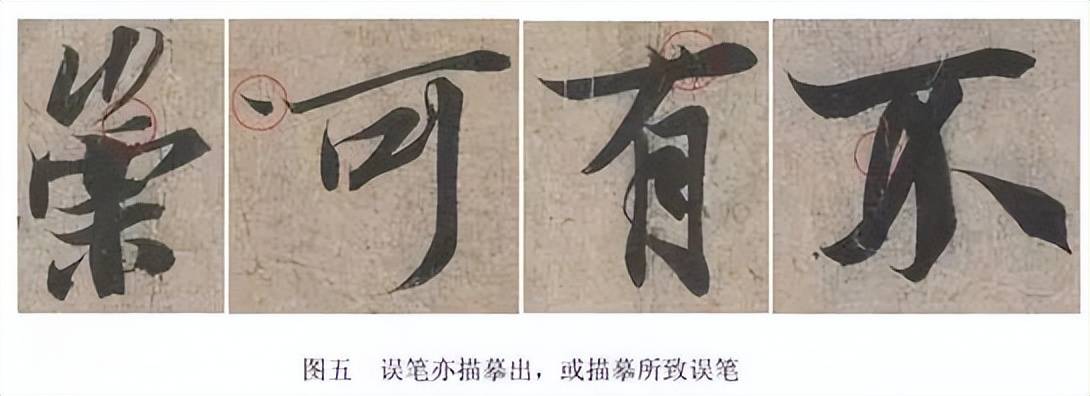 崇 可 有 不
图五 误笔亦描摹出，或描摹所致误笔